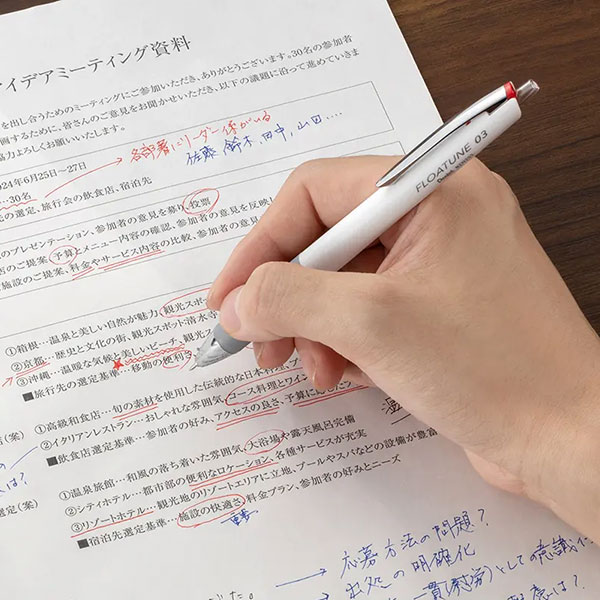 イデアミーティング資料
を出し合うためのミーティングにご参加いただき、ありがとうございます。30名の参加者
画するために、皆さんのご意見をお聞かせいただき、以下の議題に沿って進めていきま
協力よろしくお願いいたします。
各部署にリーダー係がいる
佐藤、鈴木、田中、山田....
2024年6月25日-27日
…30名
先の選定、旅行会の飲食店、宿泊先
のプレゼンテーション、参加者の意見を募り、投票
店のご提案、予算とメニュー内容の確認、参加者の意見を反映し
施設のご提案、料金やサービス内容の比較、参加者の意見
①箱根…温泉と美しい自然が魅力、観光スポ
②京都…歴史と文化の街、観光スポット:清水寺
③沖縄…温暖な気候と美しいビーチ、観光ス
■旅行先の選定基準…移動の便利さ
定(案)
①高級和食店…旬の素材を使用した伝統的な日本料理、
②イタリアンレストラン…おしゃれな雰囲気、コース料理とワイン
■飲食店選定基準…参加者の好み、アクセスの良さ、予算に応じた
は?
定(案)
①温泉旅館…和風の落ち着いた雰囲気、大浴場や露天風呂完備
②シティホテル…都市部の便利なロケーション、各種サービスが充実
③リゾートホテル…観光地のリゾートエリアに立地、プールやスパなどの設備が豊富
■宿泊先選定基準…施設の快適さ、料金プラン、参加者の好みとニーズ
重要
応募方法の問題?
出処の明確化
一貫としての意識に
は?
FLOATUNE 03
Pentel